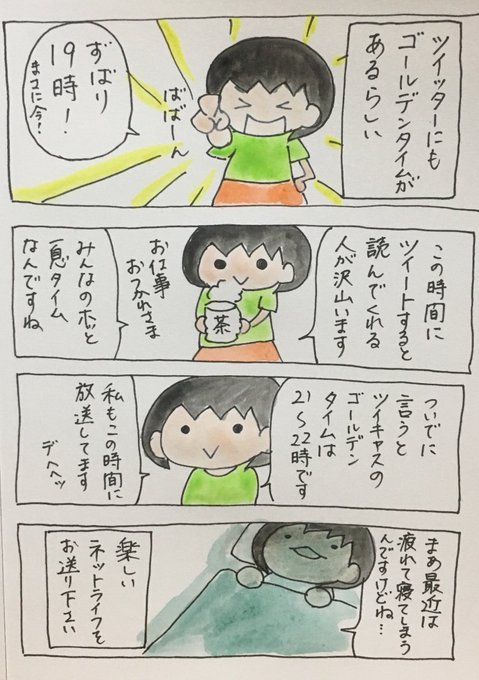 ツイッターにも
ゴールデンタイムが
あるらしい
ばばーん
ずばり
19時!
まさに今!
この時間に
ツイートすると
読んでくれる
人が沢山います
茶
お仕事
おつかれさま
みんなのホッと
一息タイム
なんですね
ついでに
言うと
ツイキャスの
ゴールデン
タイムは
21〜22時です
私もこの時間に
放送してます
デヘヘッ
まあ最近は
疲れて寝てしまう
んですけどね…
楽しい
ネットライフを
お送り下さい